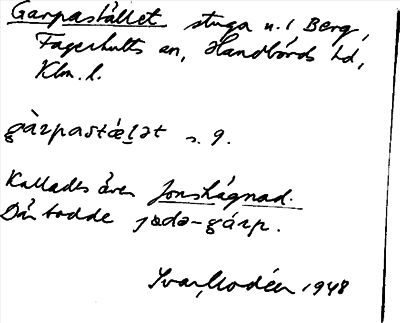 Garpastället stuga u. / Berg,
Fagerhults sn, Handbörds hd,
Klm. l.
gàrpastǽlət s. 9.
Kallades även Jonshägnad.
Där bodde jodə-gárp.
Ivar Modéer 1948